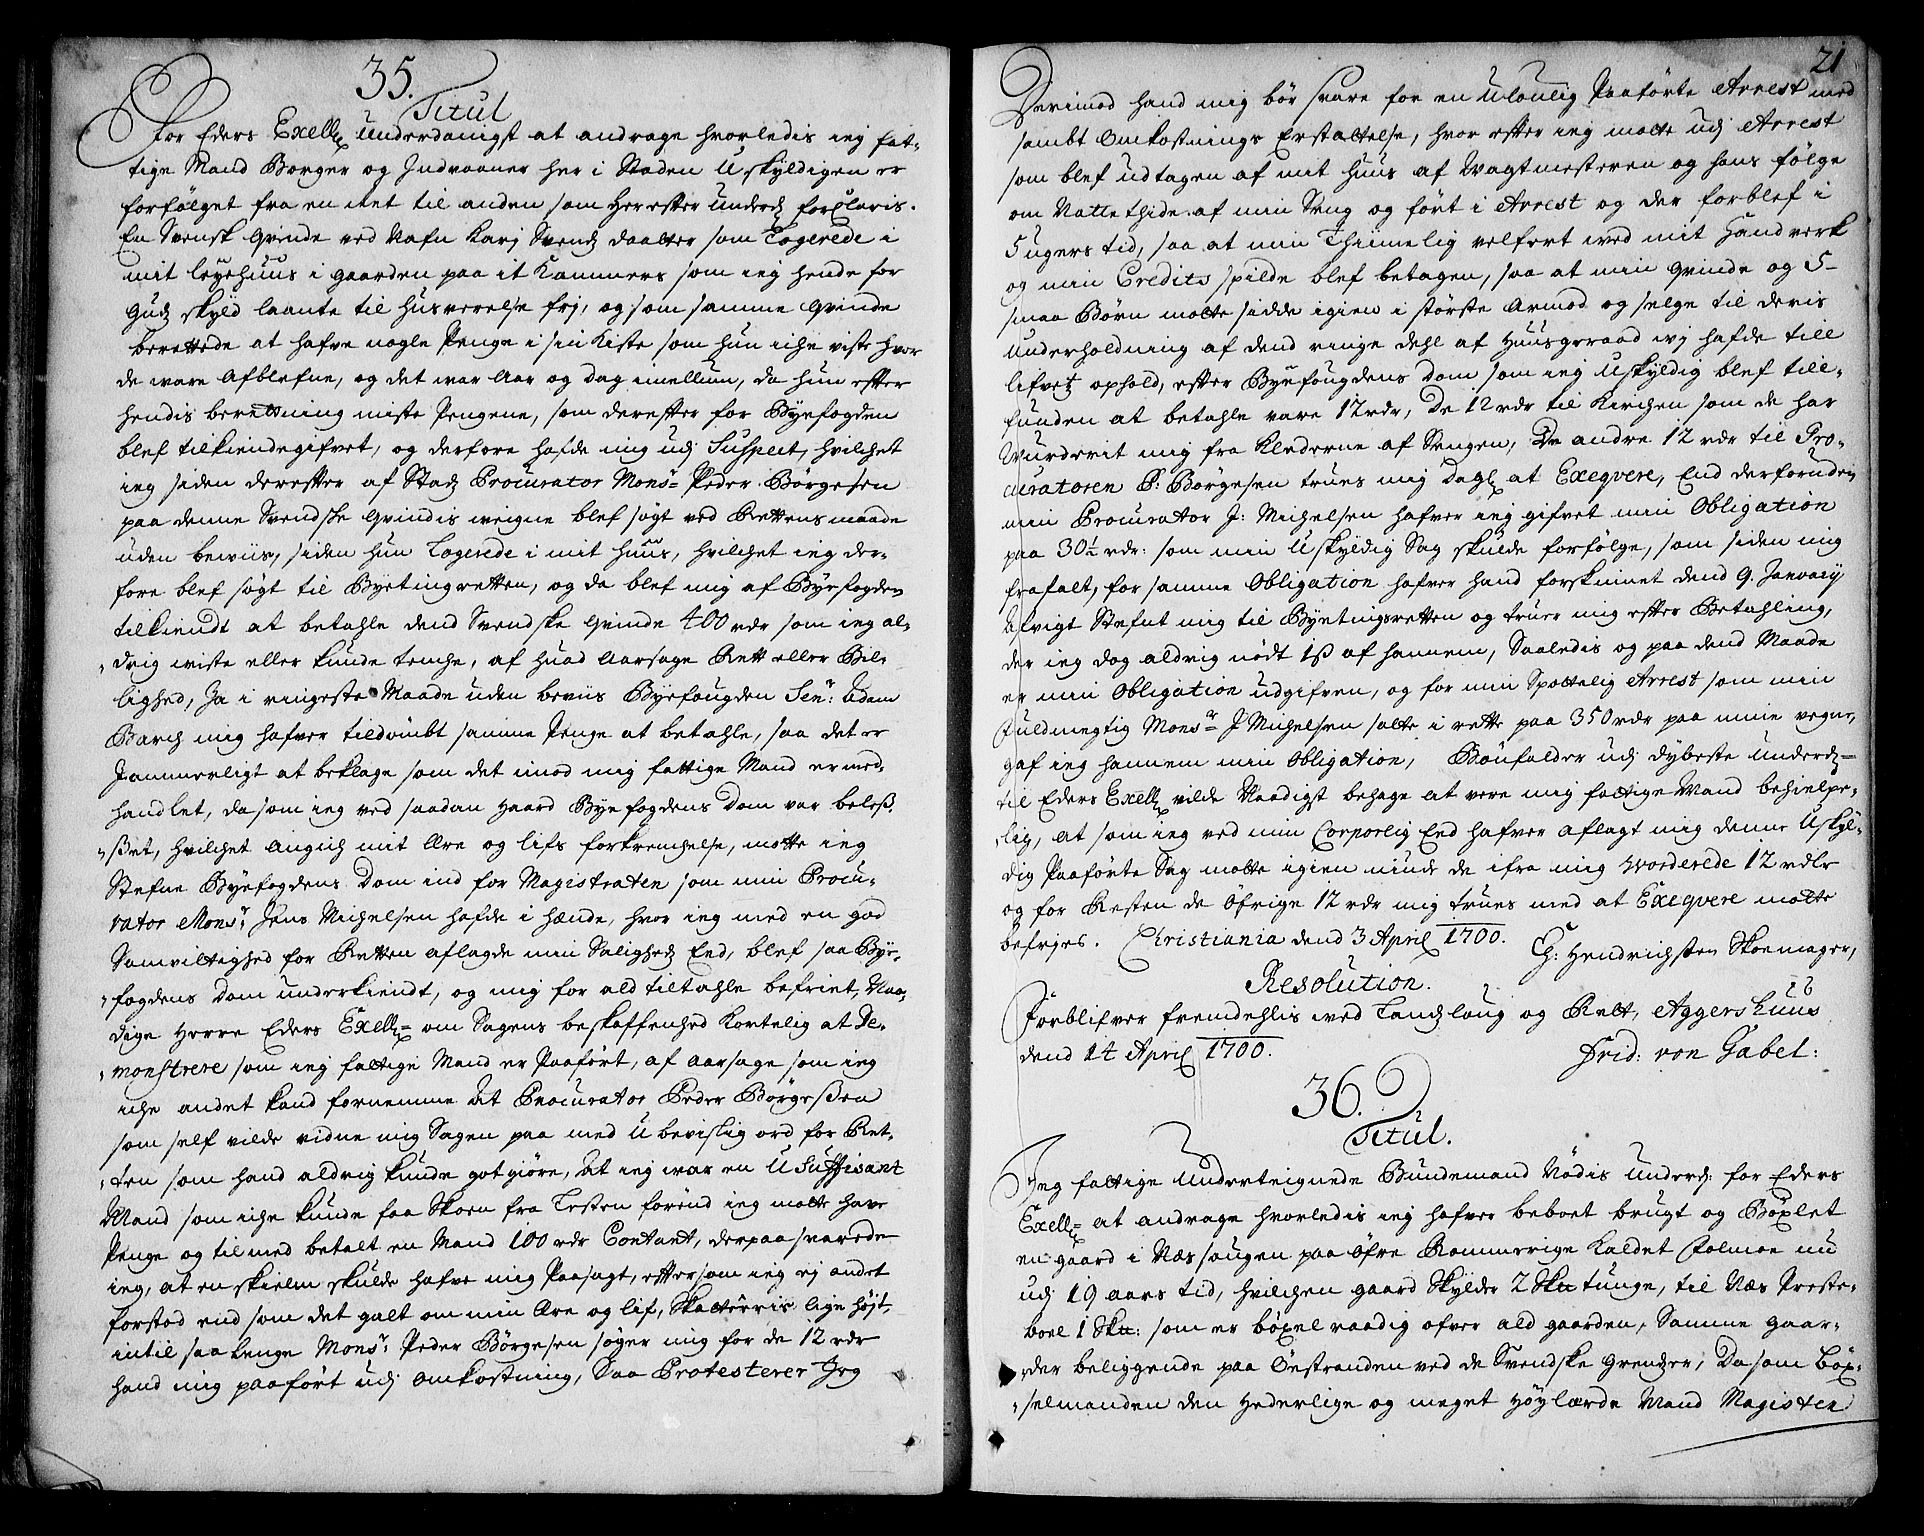 35.
Titul
For Eders Exell: Underdanigst at andrage hvorledis ieg fat-
tige Mand Borger og Indvaaner her i Staden Uskyldigen er
forfölget fra en ret til anden som Herefter Underd: forclaris.
En Svensk Qvinde ved Nafn Karj Svends daatter som Logerede i
mit leyehuus i gaarden paa it Kammers som ieg hende for
Guds skyld laante til Husverelse frj, og som samme Qvinde
berettede at hafve nogle Penge i sin Kiste som hun iche viste hvor
de ware Afblefne, og det war Aar og dag imellum, da hun efter
hendis berettning miste Pengene, som derefter for Byefogden
blef tilkiendegifvet, og derfore hafde mig udj Suspect, hvilchet
ieg siden derefter af Stads Procurator Monsr Peder Börgesen
paa denne Svendske Qvindis weigne blef sögt ved Rettens maade
uden beviis, siden hun Logerede i mit huus, hvilchet ieg der-
fore blef sögt til Byetingretten, og da blef mig af Byefogden
tilkiendt at betahle dend Svendske Qvinde 400 rdr som ieg al-
drig wiste eller kunde tenche, af huad Aarsage Rett eller Bil-
lighed, Ja i ringeste Maade uden beviis Byefougden Senr: Adam
Barch mig hafver tildömbt samme Penge at betahle, saa det er
Jammerligt at beklage som det imod mig fattige Mand er med-
handlet, da som ieg ved saadan haard Byefogdens dom var beles-
sset, hvilchet angich mit Ære og lifs forkrenchelse, motte ieg
Stefne Byefogdens Dom ind for Magistraten som min Procu-
rator Monsr: Jens Michelsen hafde i hænde, hvor ieg med en god
Samvittighed for Retten aflagde min Saligheds Eed, blef saa Bye-
fogdens dom underkiendt, og mig for ald tiltahle befriet, Naa-
dige Herre Eders Exell: om Sagens beskaffenhed Kortelig at De-
monstrere som ieg fattige Mand er Paafört, af aarsage som ieg
iche andet kand fornemme At Procurator Peder Börgessen
som self vilde vidne mig Sagen paa med Ubevislig ord for Ret-
ten som hand aldrig kunde gotgiöre, At ieg war en U Suffisant
Mand som iche kunde faa Skoen fra Lesten förend ieg motte have
Penge og til med betalt en Mand 100 rdr Contant, derpaa svarede
ieg, at en skielm skulde hafve mig Paasagt, eftersom ieg ej andet
forstod end som det galt om min Ære og lif, Skatterris lige höjt,
intil saa lenge Monsr: Peder Börgesen söger mig for de 12 rdr
hand mig paafört udj omkostning, Saa Protesterer Jeg
21
Derimod hand mig bör svare for en Uloulig Paaförte Arrest med
sambt Omkostnings Erstattelse, hvor efter ieg motte udj Arrest
som blef udtagen af mit huus af Wagtmesteren og hans fölge
om Nattethide af min Seng og fört i Arrest og der forblef i
5 ugers tid, saa at min Thimelig velfert wed mit Handverk
og min Credits spilde blef betagen, saa at min Qvinde og 5
smaa Börn motte sidde igien i störste Armod og selge til deris
Underholdning af dend ringe dehl af Huusgeraad wj hafde till
lifvets ophold, efter Byefougdens dom som ieg Uskyldig blef till-
funden at betahle vare 12 rdr, De 12 rdr til Kirchen som de har
Wurderit mig fra Klederne af Sengen, De andre 12 rdr til Pro-
curatoren P: Börgesen trues mig dagl: at Exeqvere, End derforuden
min Procurator J: Michelsen hafver ieg gifvet min Obligation
paa 30½ rdr: som min Uskyldig Sag skulde forfölge, som siden mig
frafalt, for samme Obligation hafver hand forskinnet dend 9. January
Afvigt Stefnt mig til Byetingsretten og truer mig efter Betahling,
der ieg dog aldrig nödt 1ß af hannem, Saaledis og paa dend Maade
er min Obligation udgifven, og for min Spottelig Arrest som min
fuldmegtig Monsr J Michelsen satte i rette paa 350 rdr paa mine vegne,
gaf ieg hannem min Obligation, Bönfalder udj dybeste underd:
til Eders Exell: vilde Naadigst behage at vere mig fattige Mand behielpe-
lig, at som ieg ved min Corporlig Eed hafver aflagt mig denne Uskyl-
dig Paaförte Sag motte igien niude de ifra mig Worderede 12 rdlr
og for Resten de öfrige 12 rdr mig trues med at Exeqvere motte
befries. Christiania dend 3 April 1700. Ch: Hendrichsen Skoemager,
Resolution.
Forblifver fremdehlis wed Landslaug og Rett, Aggershuus
dend 14 April 1700. Frid: von Gabel:
36.
Titul.
Jeg fattige Underteignede Bundemand Nödis Underd: for Eders
Exell: at andrage hvorledis ieg hafver beboet brugt og Böxlet
en gaard i Næs sougen paa öfre Rommerige Kaldet Folmoe nu
udj 19 aars tid, hvilchen gaard Skylder 2 Skn tunge, til Næs Preste-
boel 1 Skn: som er böxel raadig ofver ald gaarden, Samme gaar-
der beliggende paa Öestranden ved de Svendske Grentzer, Da som böx-
selmanden den Hederlige og meget Höylærde Mand Magister